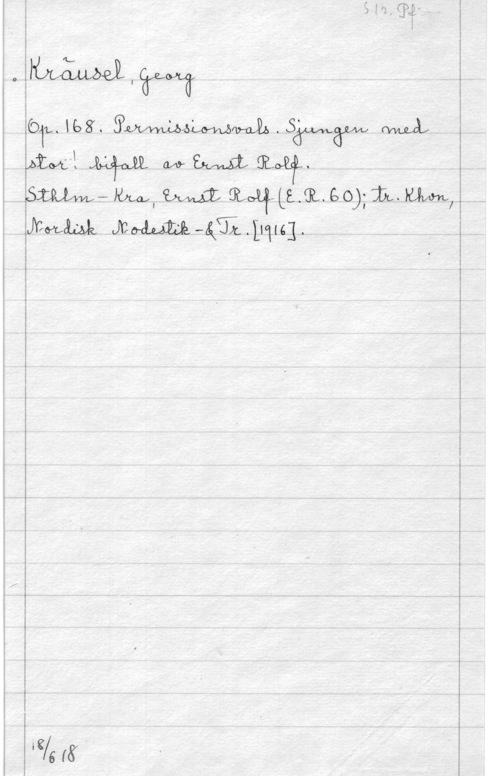 S 1 r. Pf.
Kräusel, Georg
Op. 168. Permissionsvals. Sjungen med
stor! bifall av Ernst Rolf.
Sthlm-Kra, Ernst Rolf (E.R. 60); tr. Khvn,
Nordisk Nodestik-&Tr. [1916].
18/6 18